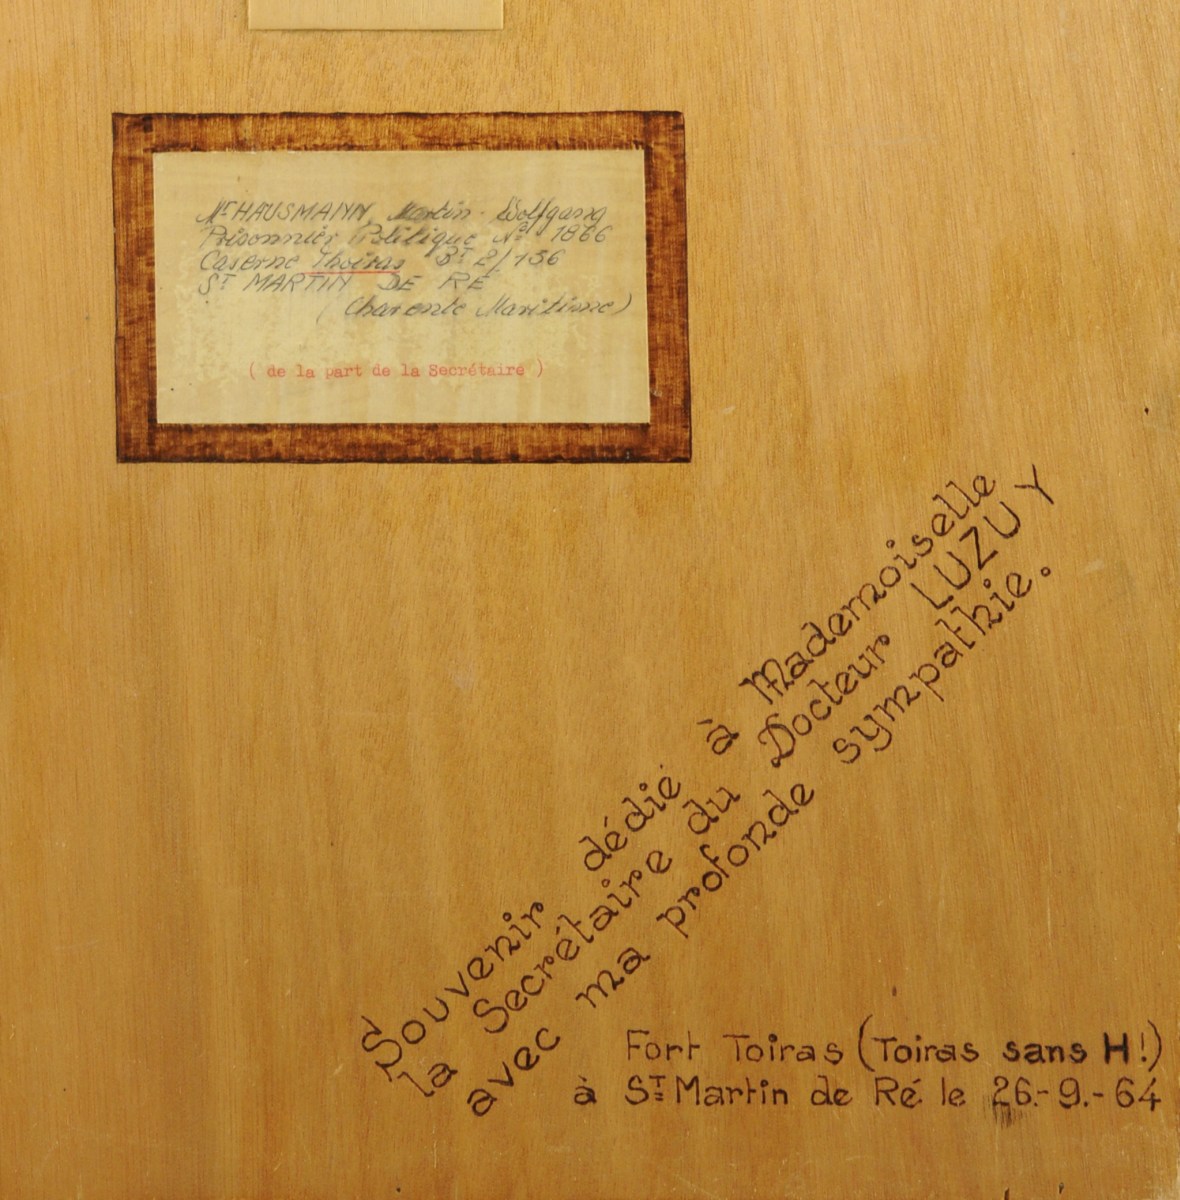 Mr HAUSMANN, Martin-Wolfgang
Prisonnier Politique No 1866
Caserne Thoiras BT 2/156
ST MARTIN DE RÉ
(Charente Maritime)
( de la part de la Secrétaire )
Souvenir dédié à Mademoiselle
la Secrétaire du Docteur LUZUY
avec ma profonde sympathie.
Fort Toiras (Toiras sans H!)
à ST Martin de Ré le 26.-9.-64